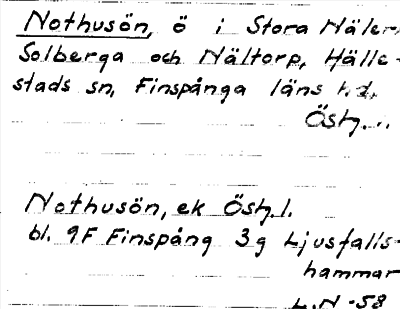 Nothusön, ö i Stora Nälern
Solberga och Nältorp, Hälle-
stads sn, Finspånga läns hd,
Östg...
Nothusön, ek Östg.l.
bl. 9F Finspång 3g Ljusfalls-
hammar
L.N -58